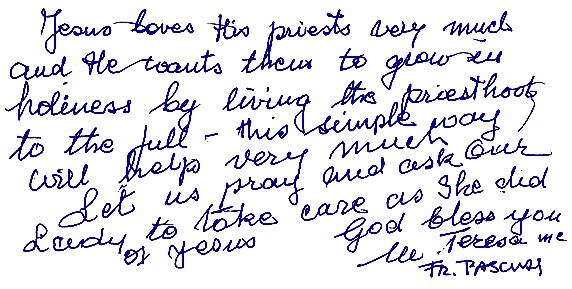 Jesus loves His priests very much
and He wants them to grow in
holiness by living the priesthood
to the full – this simple way
will help very much
Let us pray and ask Our
Lady to take care as She did
of Jesus
God bless you
M. Teresa mc
FR. PASCUAL